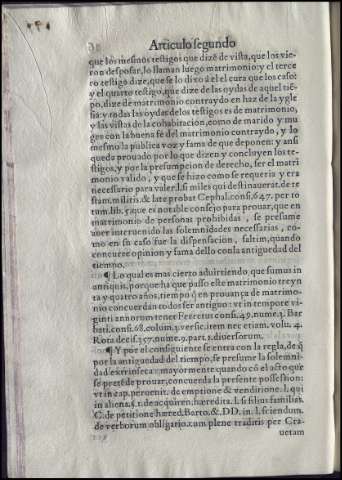 Articulo segundo
que los mesmos testigos que dizẽ de vista, que los vie-
ron desposar, lo llaman luego matrimonio: y el terce
ro testigo dize, que se lo dixo a el el cura que los casò:
y el quarto testigo, que dize de las oydas de aquel tiẽ-
po, dize de matrimonio contraydo en haz de la ygle
sia: y todas las oydas de los testigos es de matrimonio,
y las vistas de la cohabitacion, como de marido y mu
ger con la buena fè del matrimonio contraydo, y lo
mesmo la publica voz y fama de que deponen: y ansi
queda prouado por lo que dizen y concluyen los tes-
tigos, y por la presumpcion de derecho, ser el matri
monio valido, y que se hizo como se requeria y era
necessario para valer. l. si miles qui destinauerat. de te
stam. milit. & late probat Cephal. cons. 647. per to
tum. lib. y que es notable consejo para prouar, que en
matrimonio de personas prohibidas, se presume
auer interuenido las solemnidades necessarias, co-
mo en su caso fue la dispensacion, saltim, quando
concurre opinion y fama dello con la antiguedad del
tiempo.
¶ Lo qual es mas cierto aduirtiendo que sumus in
antiquis, porque ha que passò este matrimonio treyn
ta y quatro años, tiempo q̃ en prouança de matrimo-
nio concuerdan todos ser antiguo: vt in tempore vi-
ginti annorum tenet Ferretus cons. 49. nume. 3. Bar
bati. cons. 68. colum. 3. versic. item nec etiam. volu. 4.
Rota decis. 357. nume. 9. part. 2. diuersorum.
¶ Y por el consiguiente se entra con la regla, de q̃
por la antiguedad del tiempo, se presume la solemni-
dad extrinseca: mayormente quando cõ el acto que
se pretẽde prouar, concuerda la presente possession:
vt in cap. peruenit. de emptione & venditione. l. qui
in aliena. §. 1. de acquiren. hæredita. l. si filius familias.
C. de petitione hæred. Barto. & DD. in. l. sciendum.
de verborum obligatio. cum plene traditis per Cra-
uetam